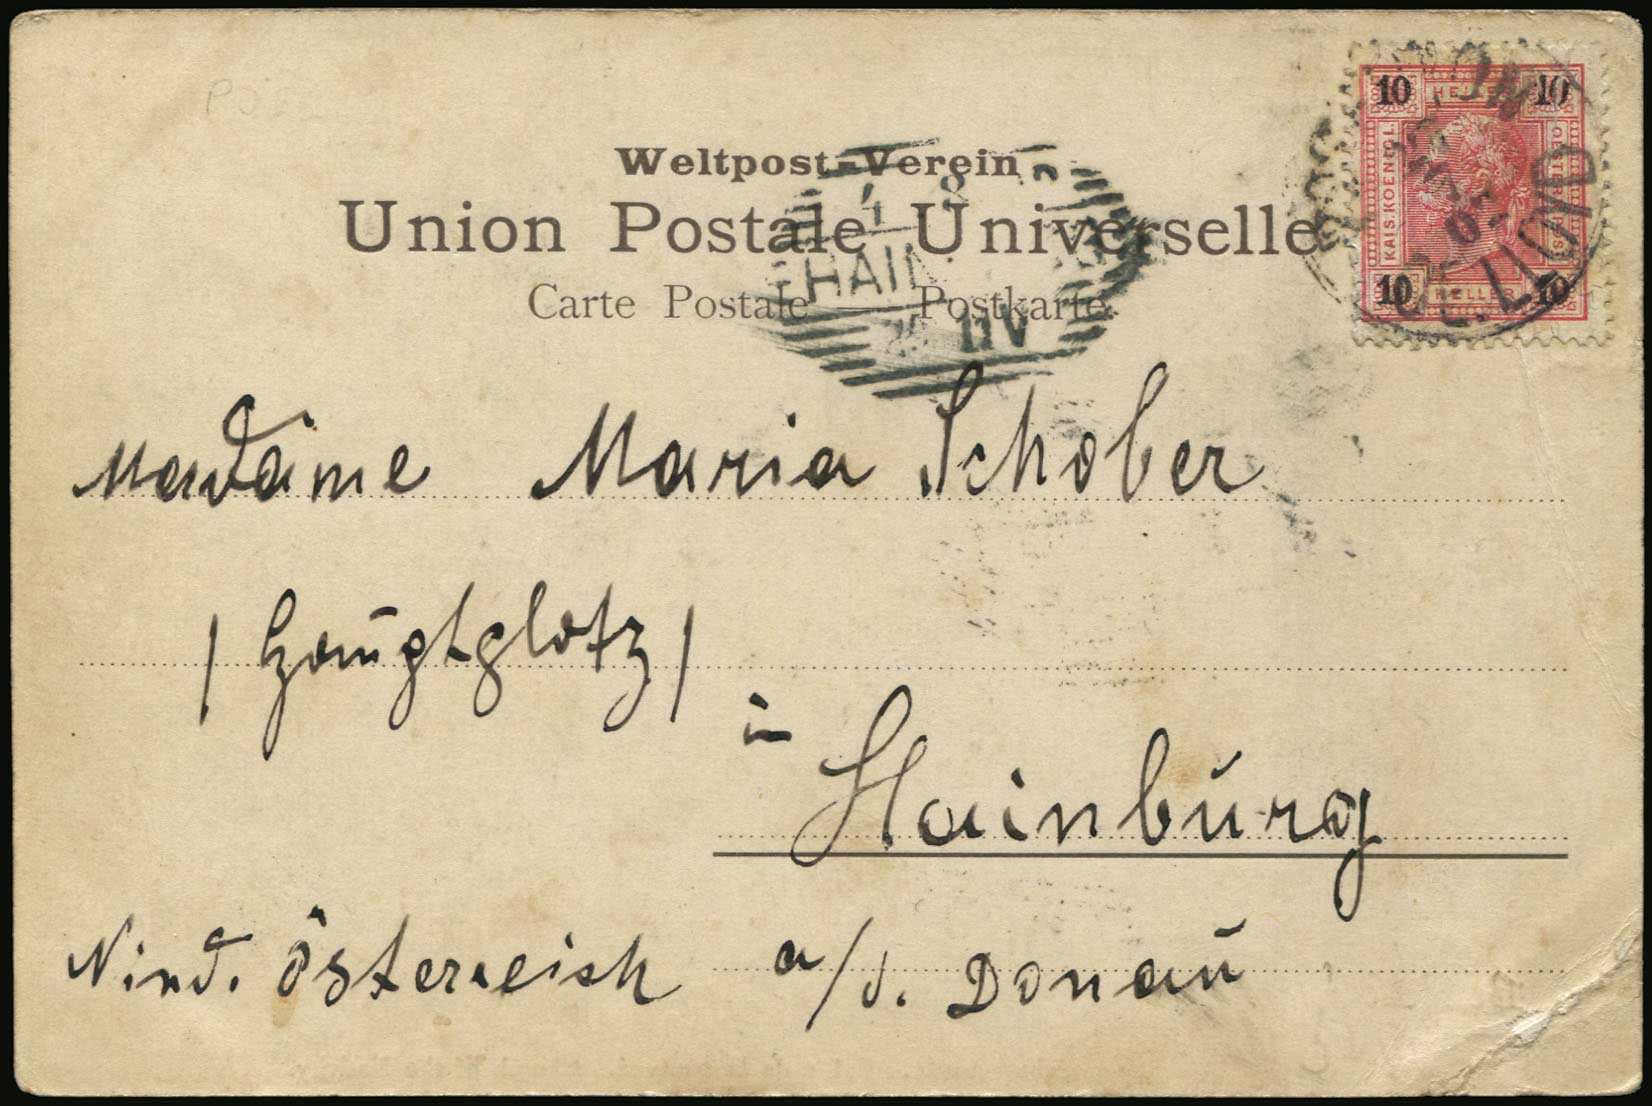 Weltpost-Verein
Union Postale Universelle
Carte Postale — Postkarte
10 HELLER 10
KAIS.KOENIGL.
10 HELLER 10
LLOYD
HAIN
Madame Maria Schober
/ Hauptplatz /
in
Hainburg
Nied. Österreich a/d. Donau